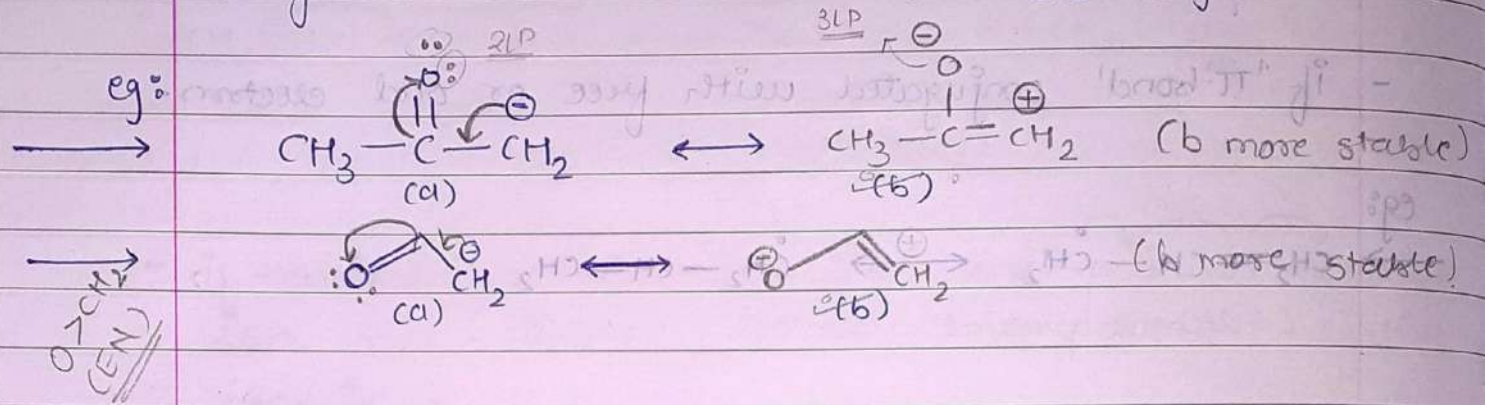 2LP 3LP ⊖
eg: :O: O ⊕
CH₃—C—CH₂ ⊖ ↔ CH₃—C=CH₂ (b more stable)
(a) (b)
:O: ⊖ CH₂ ↔ ⊕ O CH₂ (b more stable)
(a) (b)
O > CH₂
(EN)